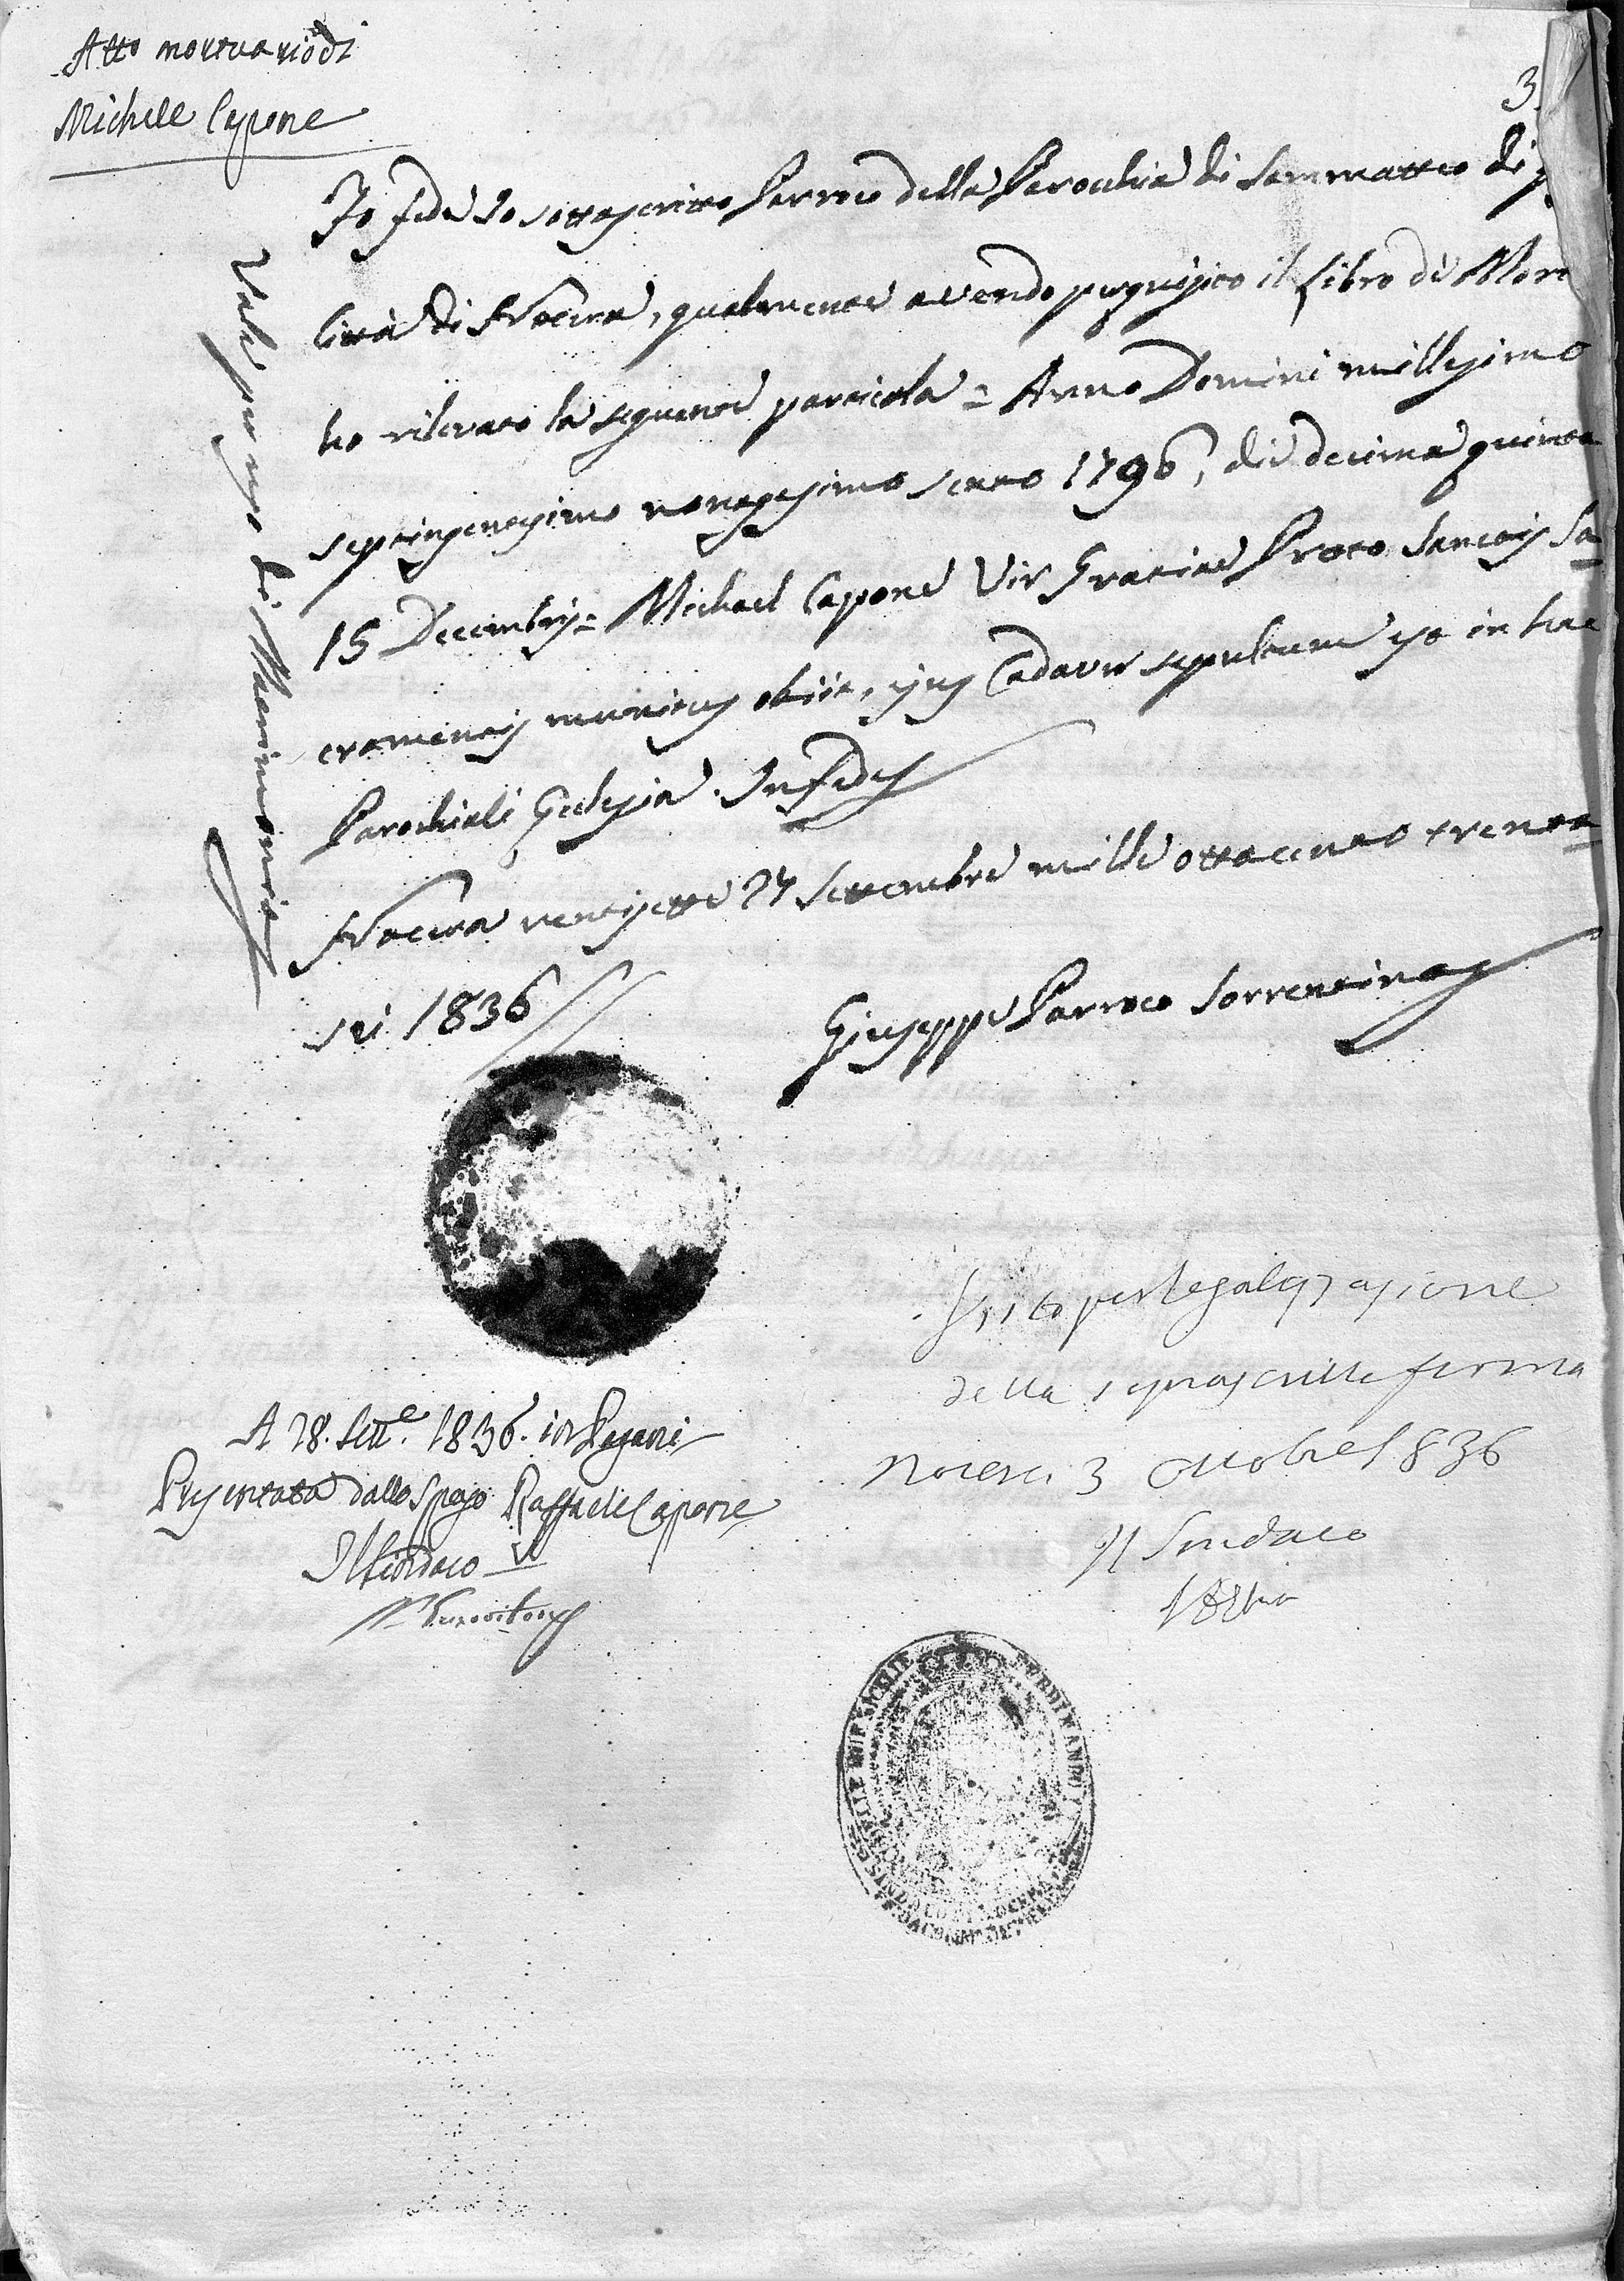 Atto mortuario di
Michele Capone
3
Fo fede Io sottoscritto Parroco della Parocchia di Sammatteo di
Città di Nocera, qualmente avendo perquisito il Libro de Mort
ho rilevato la seguente particola = Anno Domini millesimo
septingentesimo nonagesimo sexto 1796, die decima quinta
15 Decembris = Michael Capone Vir Gratiae Proto Sanctis Sa=
cramentis munitus obiit, ejus Cadaver sepultum est in hac
Parochiali Ecclesia. In fede
Nocera ventisette 27 Settembre mille ottocento trenta=
sei 1836
Giuseppe Parroco Sorrentino
Vale per uso di Matrimonio
A 28. Sett.e 1836. in Pagani
Presentata dallo Sposo Raffaele Capone
Il Sindaco
Visto per legalizzazione
della soprascritta firma
Nocera 3 Ottobre 1836
Il Sindaco
FERDINANDO